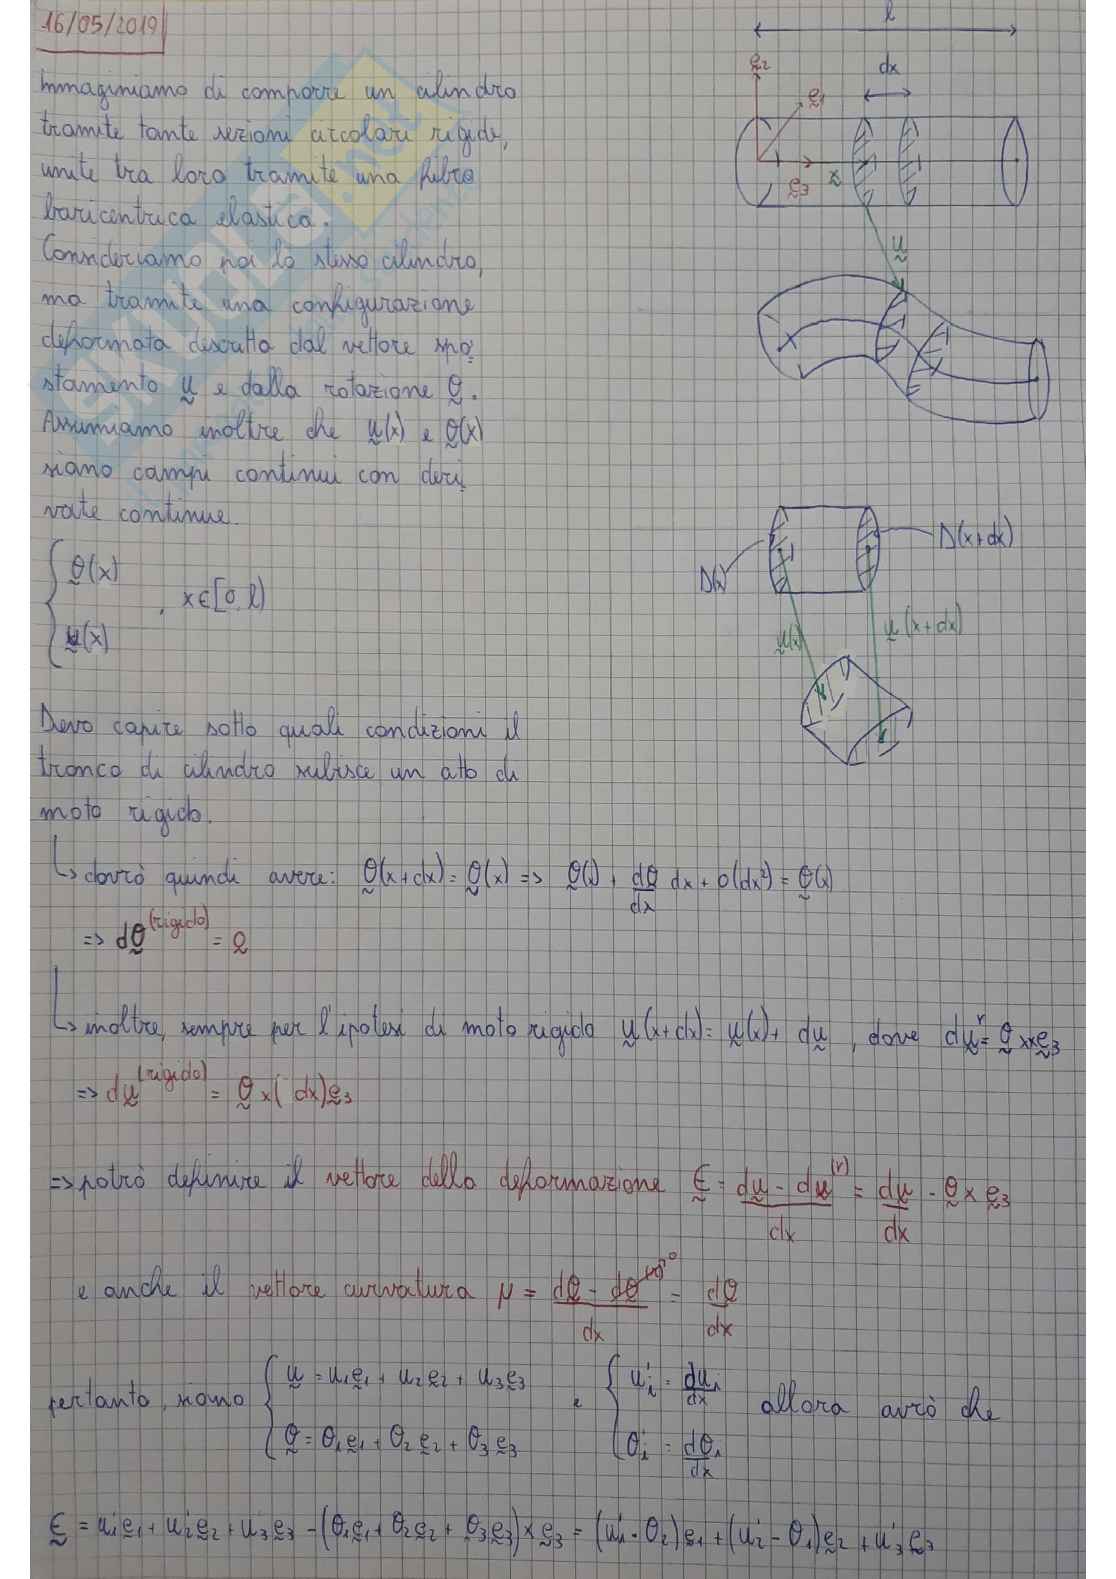 16/05/2019
Immaginiamo di comporre un cilindro
tramite tante sezioni circolari rigide,
unite tra loro tramite una fibra
baricentrica elastica.
Consideriamo poi lo stesso cilindro,
ma tramite una configurazione
deformata descritta dal vettore spo
stamento u e dalla rotazione θ.
Assumiamo inoltre che u(x) e θ(x)
siano campi continui con deri
vate continue.
θ(x)
, x∈[0, l)
u(x)
l
dx
e2
e1
e3
x
u
D(x)
D(x+dx)
u(x)
u(x+dx)
Devo capire sotto quali condizioni il
tronco di cilindro subisce un atto di
moto rigido.
↳ dovrò quindi avere: θ(x+dx) = θ(x) => θ(x) + dθ/dx dx + o(dx²) = θ(x)
=> dθ^(rigido) = 0
↳ inoltre, sempre per l'ipotesi di moto rigido u(x+dx) = u(x) + du, dove du^r = θ × x e3
=> du^(rigido) = θ × (dx) e3
=> potrò definire il vettore della deformazione ε = (du - du^(r))/dx = du/dx - θ × e3
e anche il vettore curvatura μ = (dθ - dθ^(r))/dx = dθ/dx
0
pertanto, siano { u = u1e1 + u2e2 + u3e3 e { u'i = dui/dx allora avrò che
θ = θ1e1 + θ2e2 + θ3e3 θ'i = dθi/dx
ε = u'1e1 + u'2e2 + u'3e3 - (θ1e1 + θ2e2 + θ3e3) × e3 = (u'1 - θ2)e1 + (u'2 - θ1)e2 + u'3e3